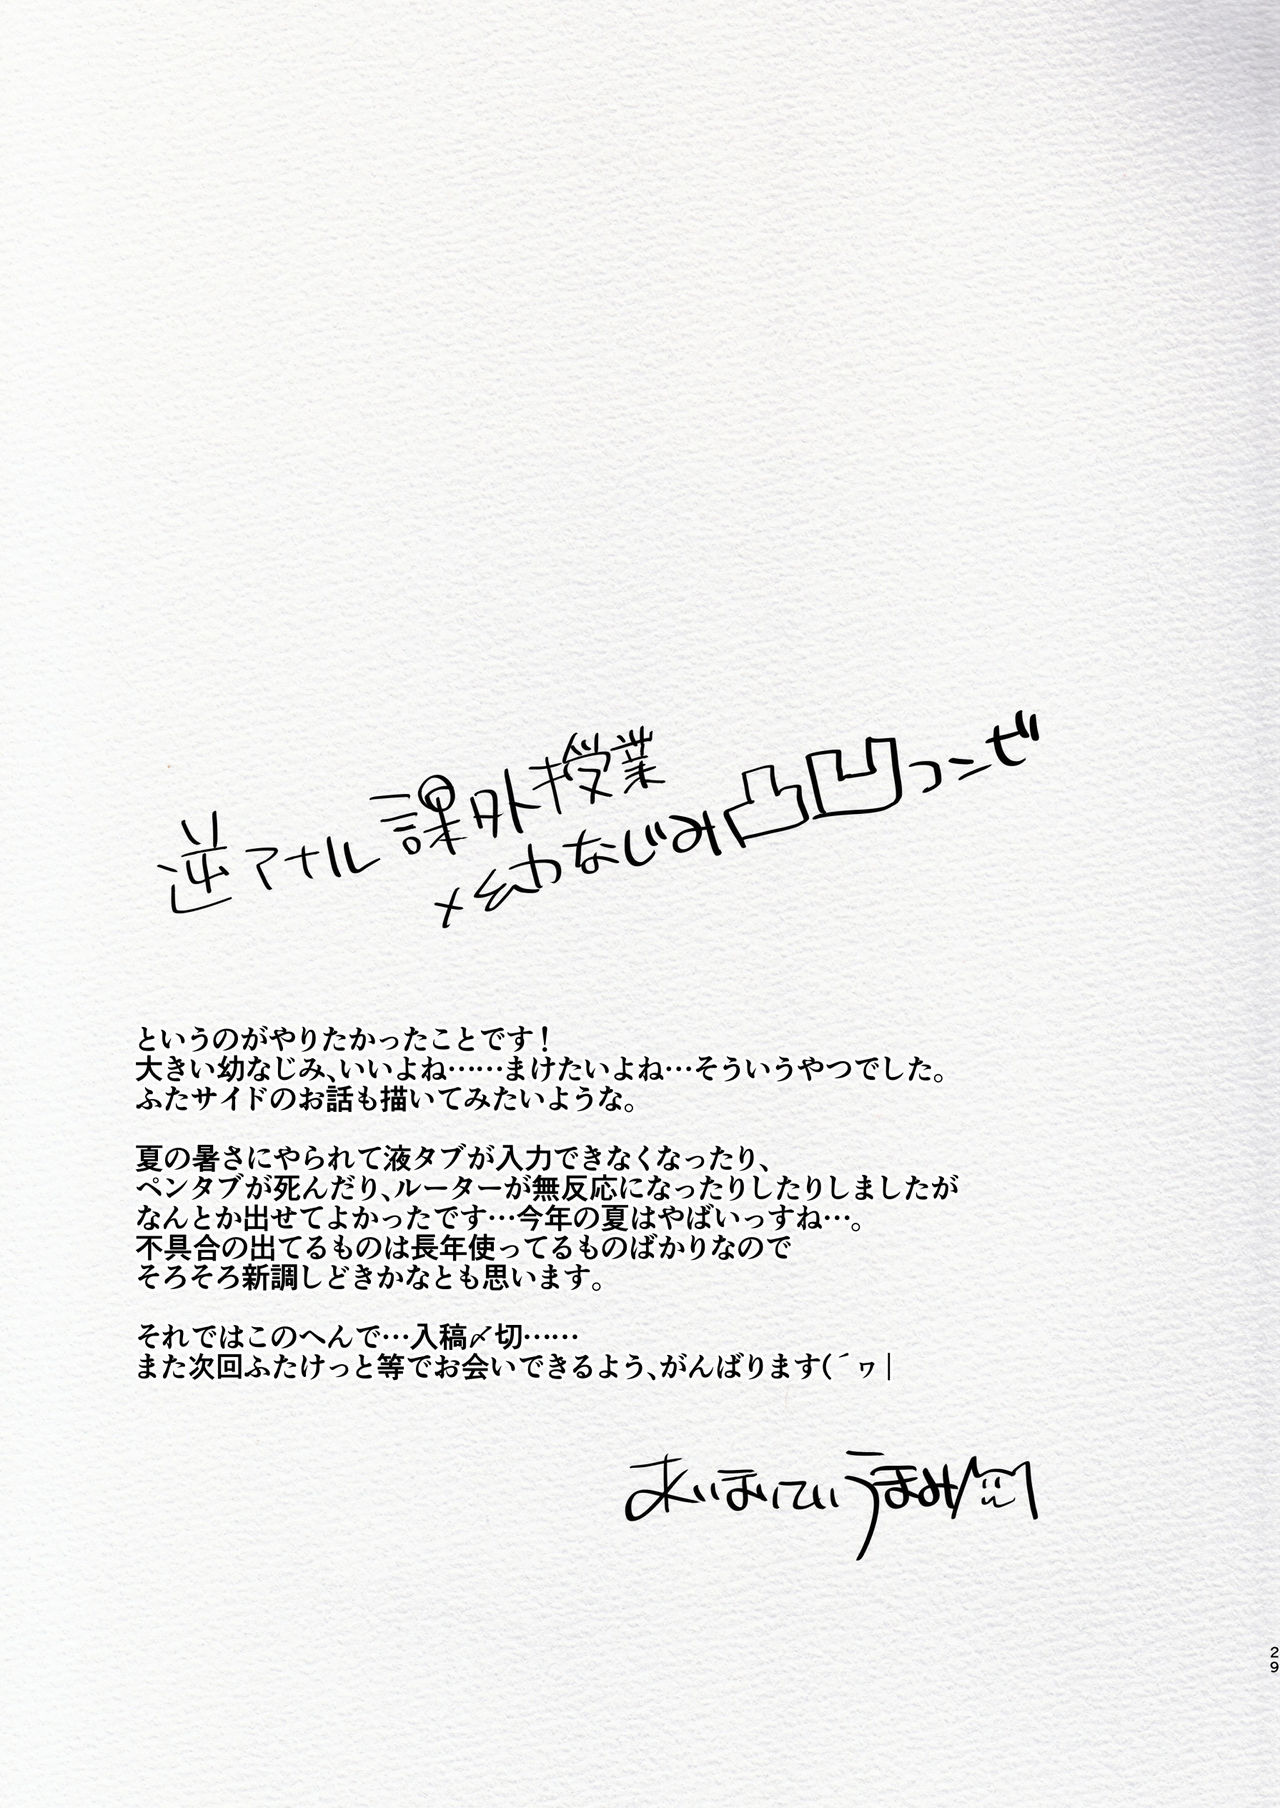 逆アナル課外授業
×幼なじみ凸凹コンビ
というのがやりたかったことです！
大きい幼なじみ、いいよね……まけたいよね…そういうやつでした。
ふたサイドのお話も描いてみたいような。
夏の暑さにやられて液タブが入力できなくなったり、
ペンタブが死んだり、ルーターが無反応になったりしたりしましたが
なんとか出せてよかったです…今年の夏はやばいっすね…。
不具合の出てるものは長年使ってるものばかりなので
そろそろ新調しどきかなとも思います。
それではこのへんで…入稿〆切……
また次回ふたけっと等でお会いできるよう、がんばります(´ヮ|
あいほいていうまみ
29